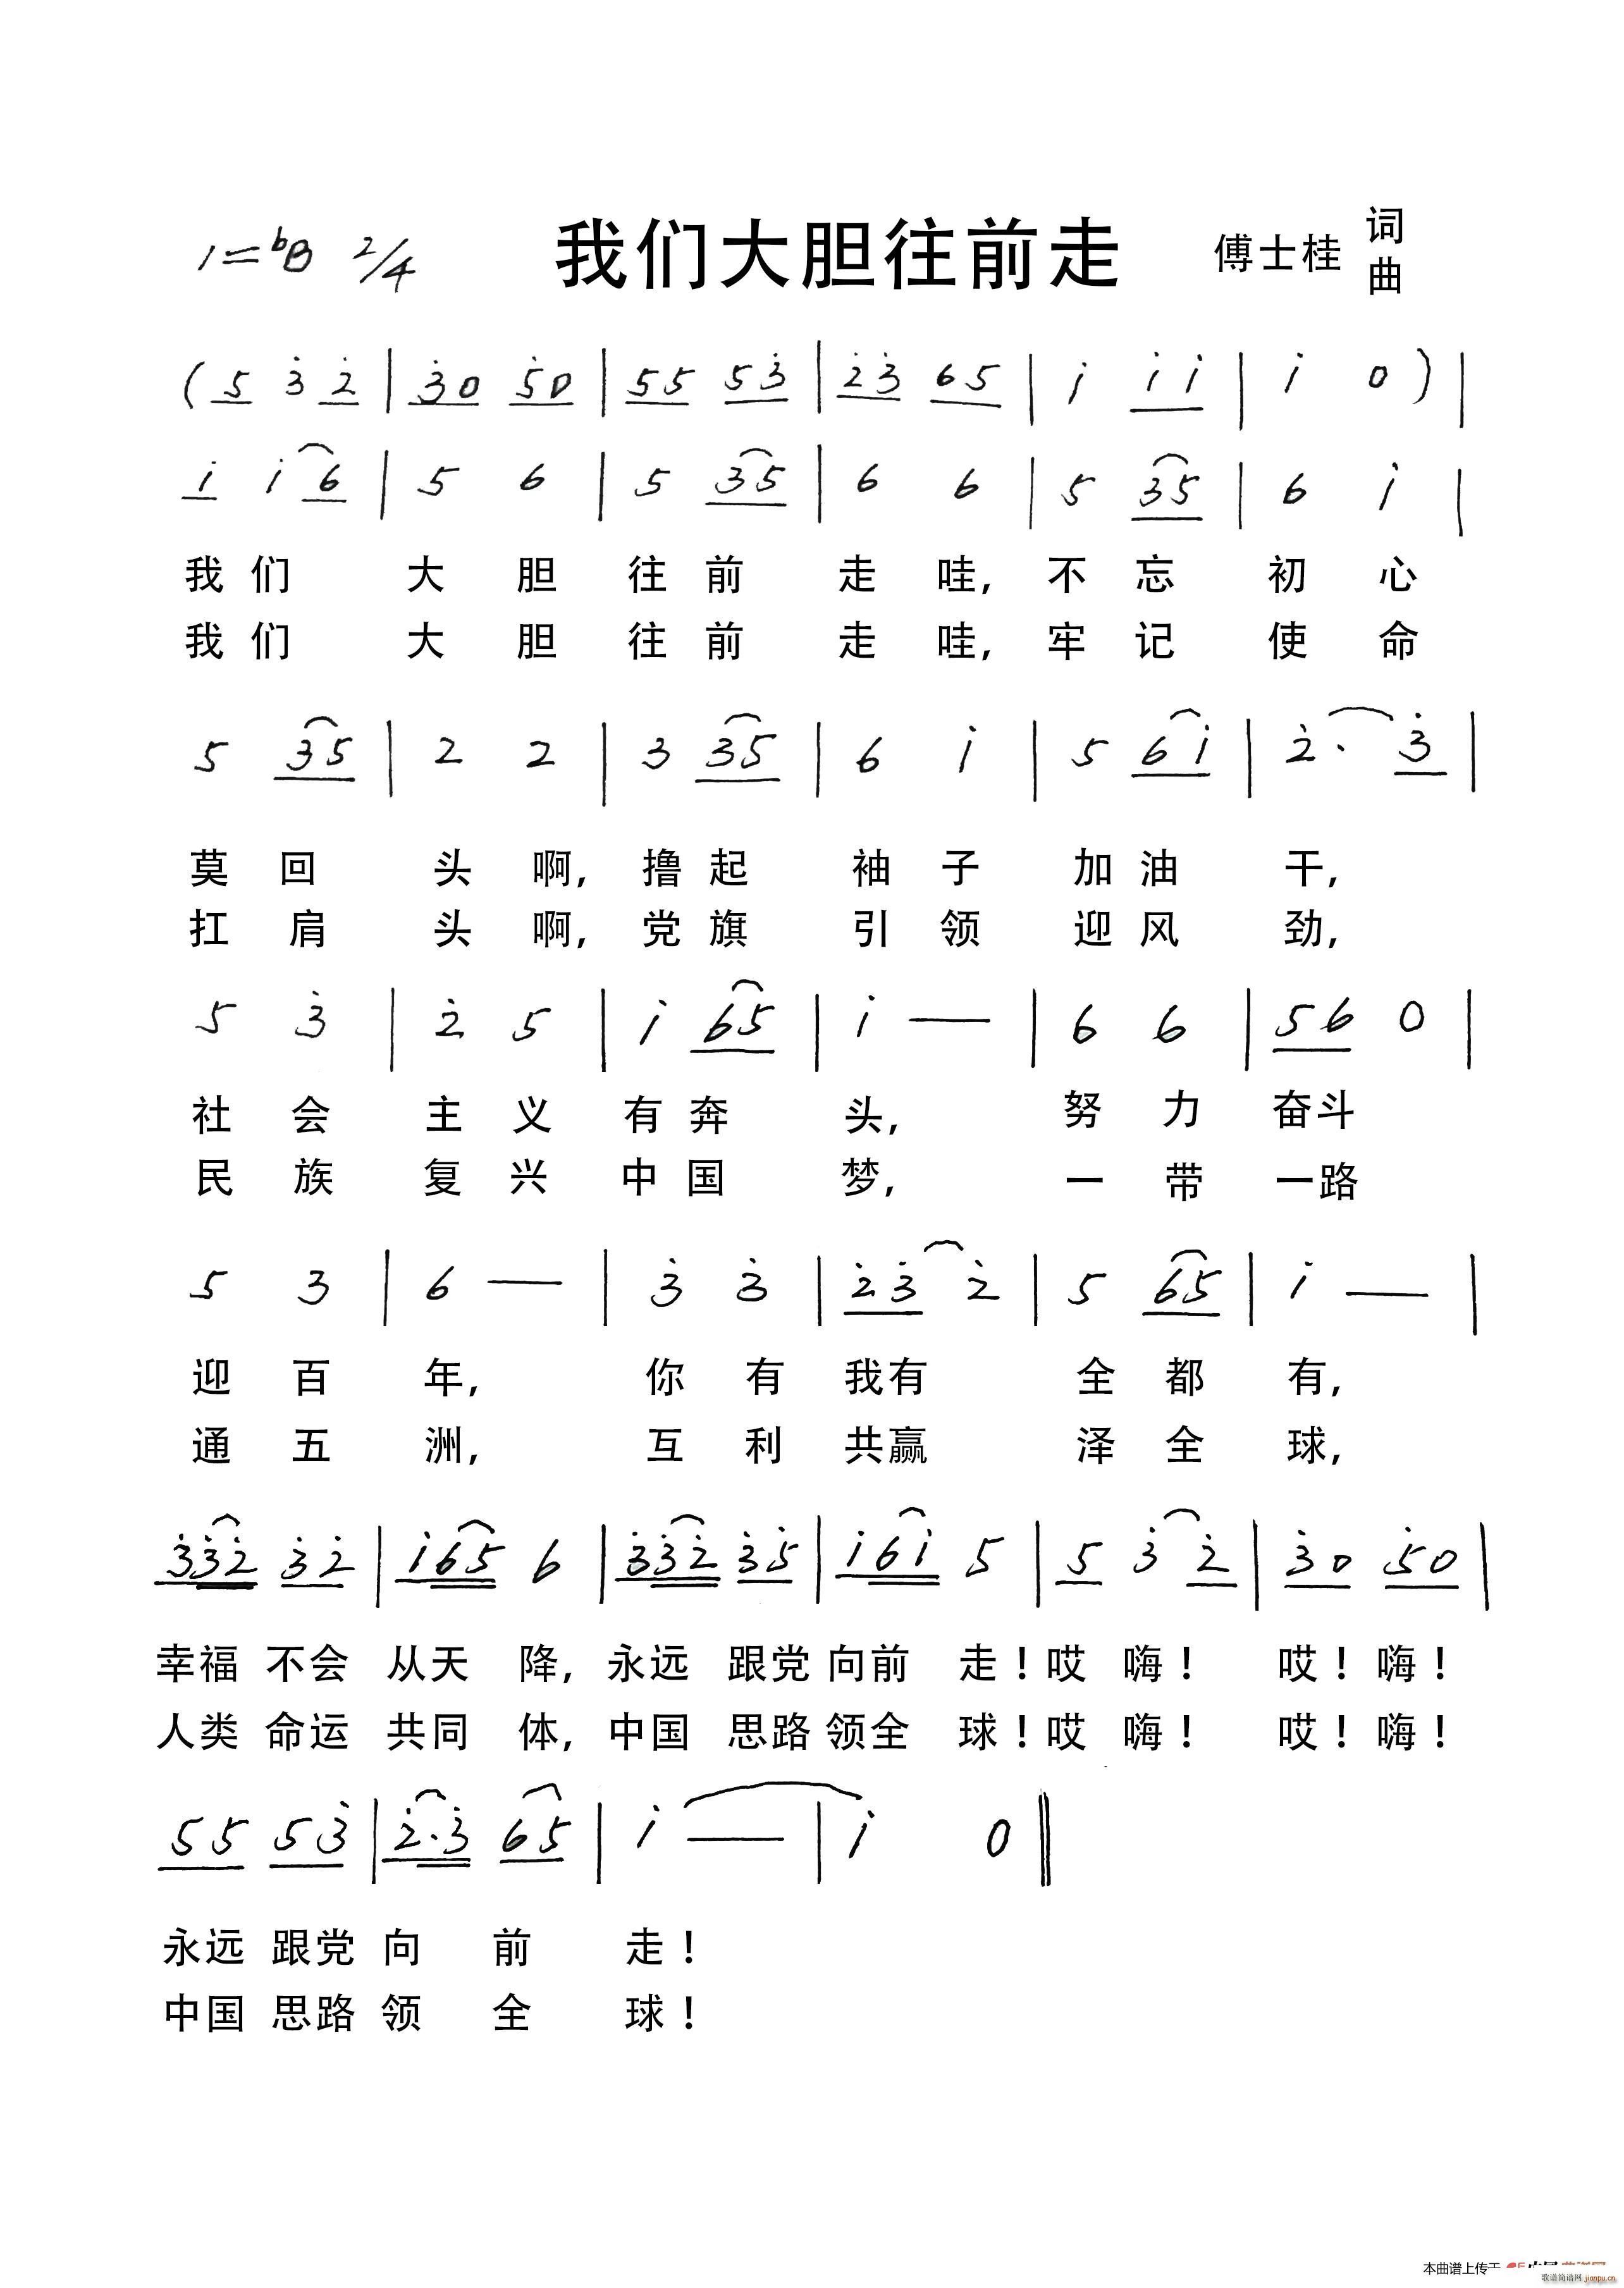 1=♭B 2/4 我们大胆往前走 傅士桂 词曲
( 5 3̇ 2̇ | 3̇0 5̇0 | 55 53̇ | 2̇3̇ 65 | i ii | i 0 ) |
i i6 | 5 6 | 5 35 | 6 6 | 5 35 | 6 i |
我们 大 胆 往 前 走 哇, 不 忘 初 心
我们 大 胆 往 前 走 哇, 牢 记 使 命
5 35 | 2 2 | 3 35 | 6 i | 5 6i | 2̇· 3̇ |
莫 回 头 啊, 撸 起 袖 子 加 油 干,
扛 肩 头 啊, 党 旗 引 领 迎 风 劲,
5 3̇ | 2̇ 5 | i 65 | i — | 6 6 | 56 0 |
社 会 主 义 有 奔 头, 努 力 奋斗
民 族 复 兴 中 国 梦, 一 带 一路
5 3 | 6 — | 3̇ 3̇ | 2̇3̇ 2̇ | 5 65 | i — |
迎 百 年, 你 有 我有 全 都 有,
通 五 洲, 互 利 共赢 泽 全 球,
3̇3̇2̇ 3̇2̇ | i65 6 | 3̇3̇2̇ 3̇5̇ | i6i 5 | 5 3̇ 2̇ | 3̇0 5̇0 |
幸福 不会 从天 降, 永远 跟党 向前 走！哎 嗨！ 哎！嗨！
人类 命运 共同 体, 中国 思路 领全 球！哎 嗨！ 哎！嗨！
55 53̇ | 2̇·3̇ 65 | i — | i 0 ‖
永远 跟党 向 前 走！
中国 思路 领 全 球！
本曲谱上传于
歌谱简谱网 jianpu.cn